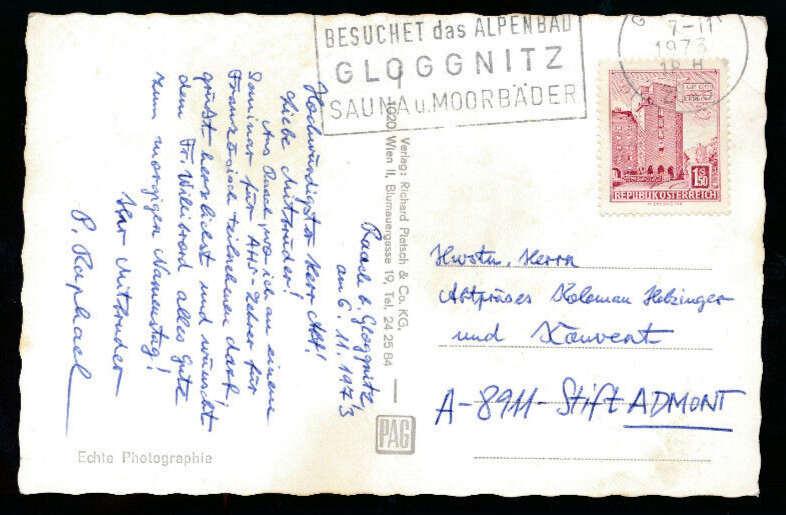 BESUCHET das ALPENBAD
GLOGGNITZ
SAUNA u. MOORBÄDER
G
7-11
1973
18 H
1.50
S
REPUBLIK ÖSTERREICH
Raach b. Gloggnitz
am 6. 11. 1973
Hochwürdigster Herr Abt!
Liebe Mitbrüder!
Aus Raach, wo ich an einem
Seminar für AHS-Lehrer für
Französisch teilnehmen darf,
grüßt herzlichst und wünscht
dem Fr. Willibrord alles Gute
zum morgigen Namenstag!
Ihr Mitbruder
P. Raphael
Verlag: Richard Pietsch & Co. KG.
1020 Wien II, Blumauergasse 19, Tel. 24 25 84
PAG
Echte Photographie
Hwstn. Herrn
Abtpräses Koloman Holzinger
und Konvent
A-8911- Stift ADMONT